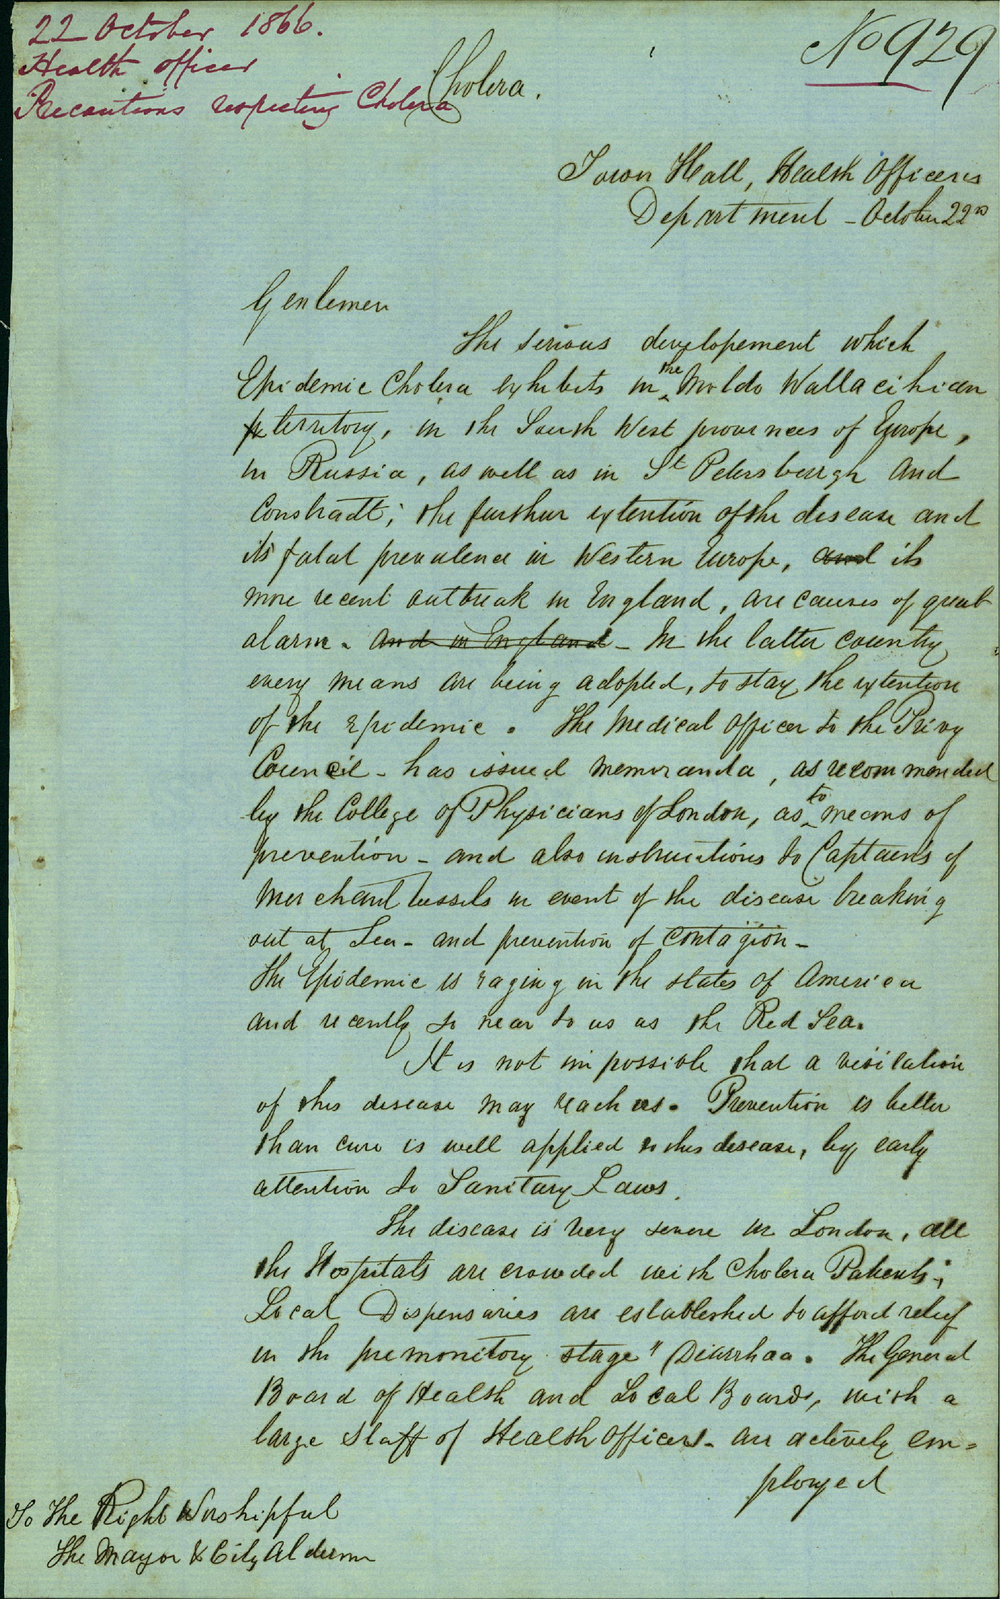 22 October 1866.
Health officer
Precautions respecting Cholera
Cholera.
No 929
Town Hall, Health Officers
Department - October 22nd
Genlemen
The serious developement which
Epidemic Cholera exhibits in the Moldo Wallacihian
territory, in the South West provinces of Europe,
in Russia, as well as in St Petersburgh and
Constradt; the further extention of the disease and
its fatal prevalence in Western Europe, and its
more recent outbreak in England, are causes of great
alarm. and in England - In the latter country
every means are being adopted, to stay the extention
of the Epidemic. The Medical officer to the Privy
Council - has issued memoranda, as recommended
by the College of Physicians of London, as to means of
prevention - and also instructions to Captains of
Merchant vessels in event of the disease breaking
out at Sea - and prevention of contagion -
The Epidemic is raging in the states of America
and recently so near to us as the Red Sea.
It is not impossible that a visitation
of this disease may reach us. Prevention is better
than cure is well applied to this disease, by early
attention to Sanitary Laws.
The disease is very severe in London, all
the Hospitals are crowded with Cholera Patients;
Local Dispensaries are established to afford relief
in the premonitory stage" Diarrhaa. The General
Board of Health and Local Boards, with a
large Staff of Health Officers - are actively em=
ployed
To The Right Worshipful
The Mayor & City Aldermn